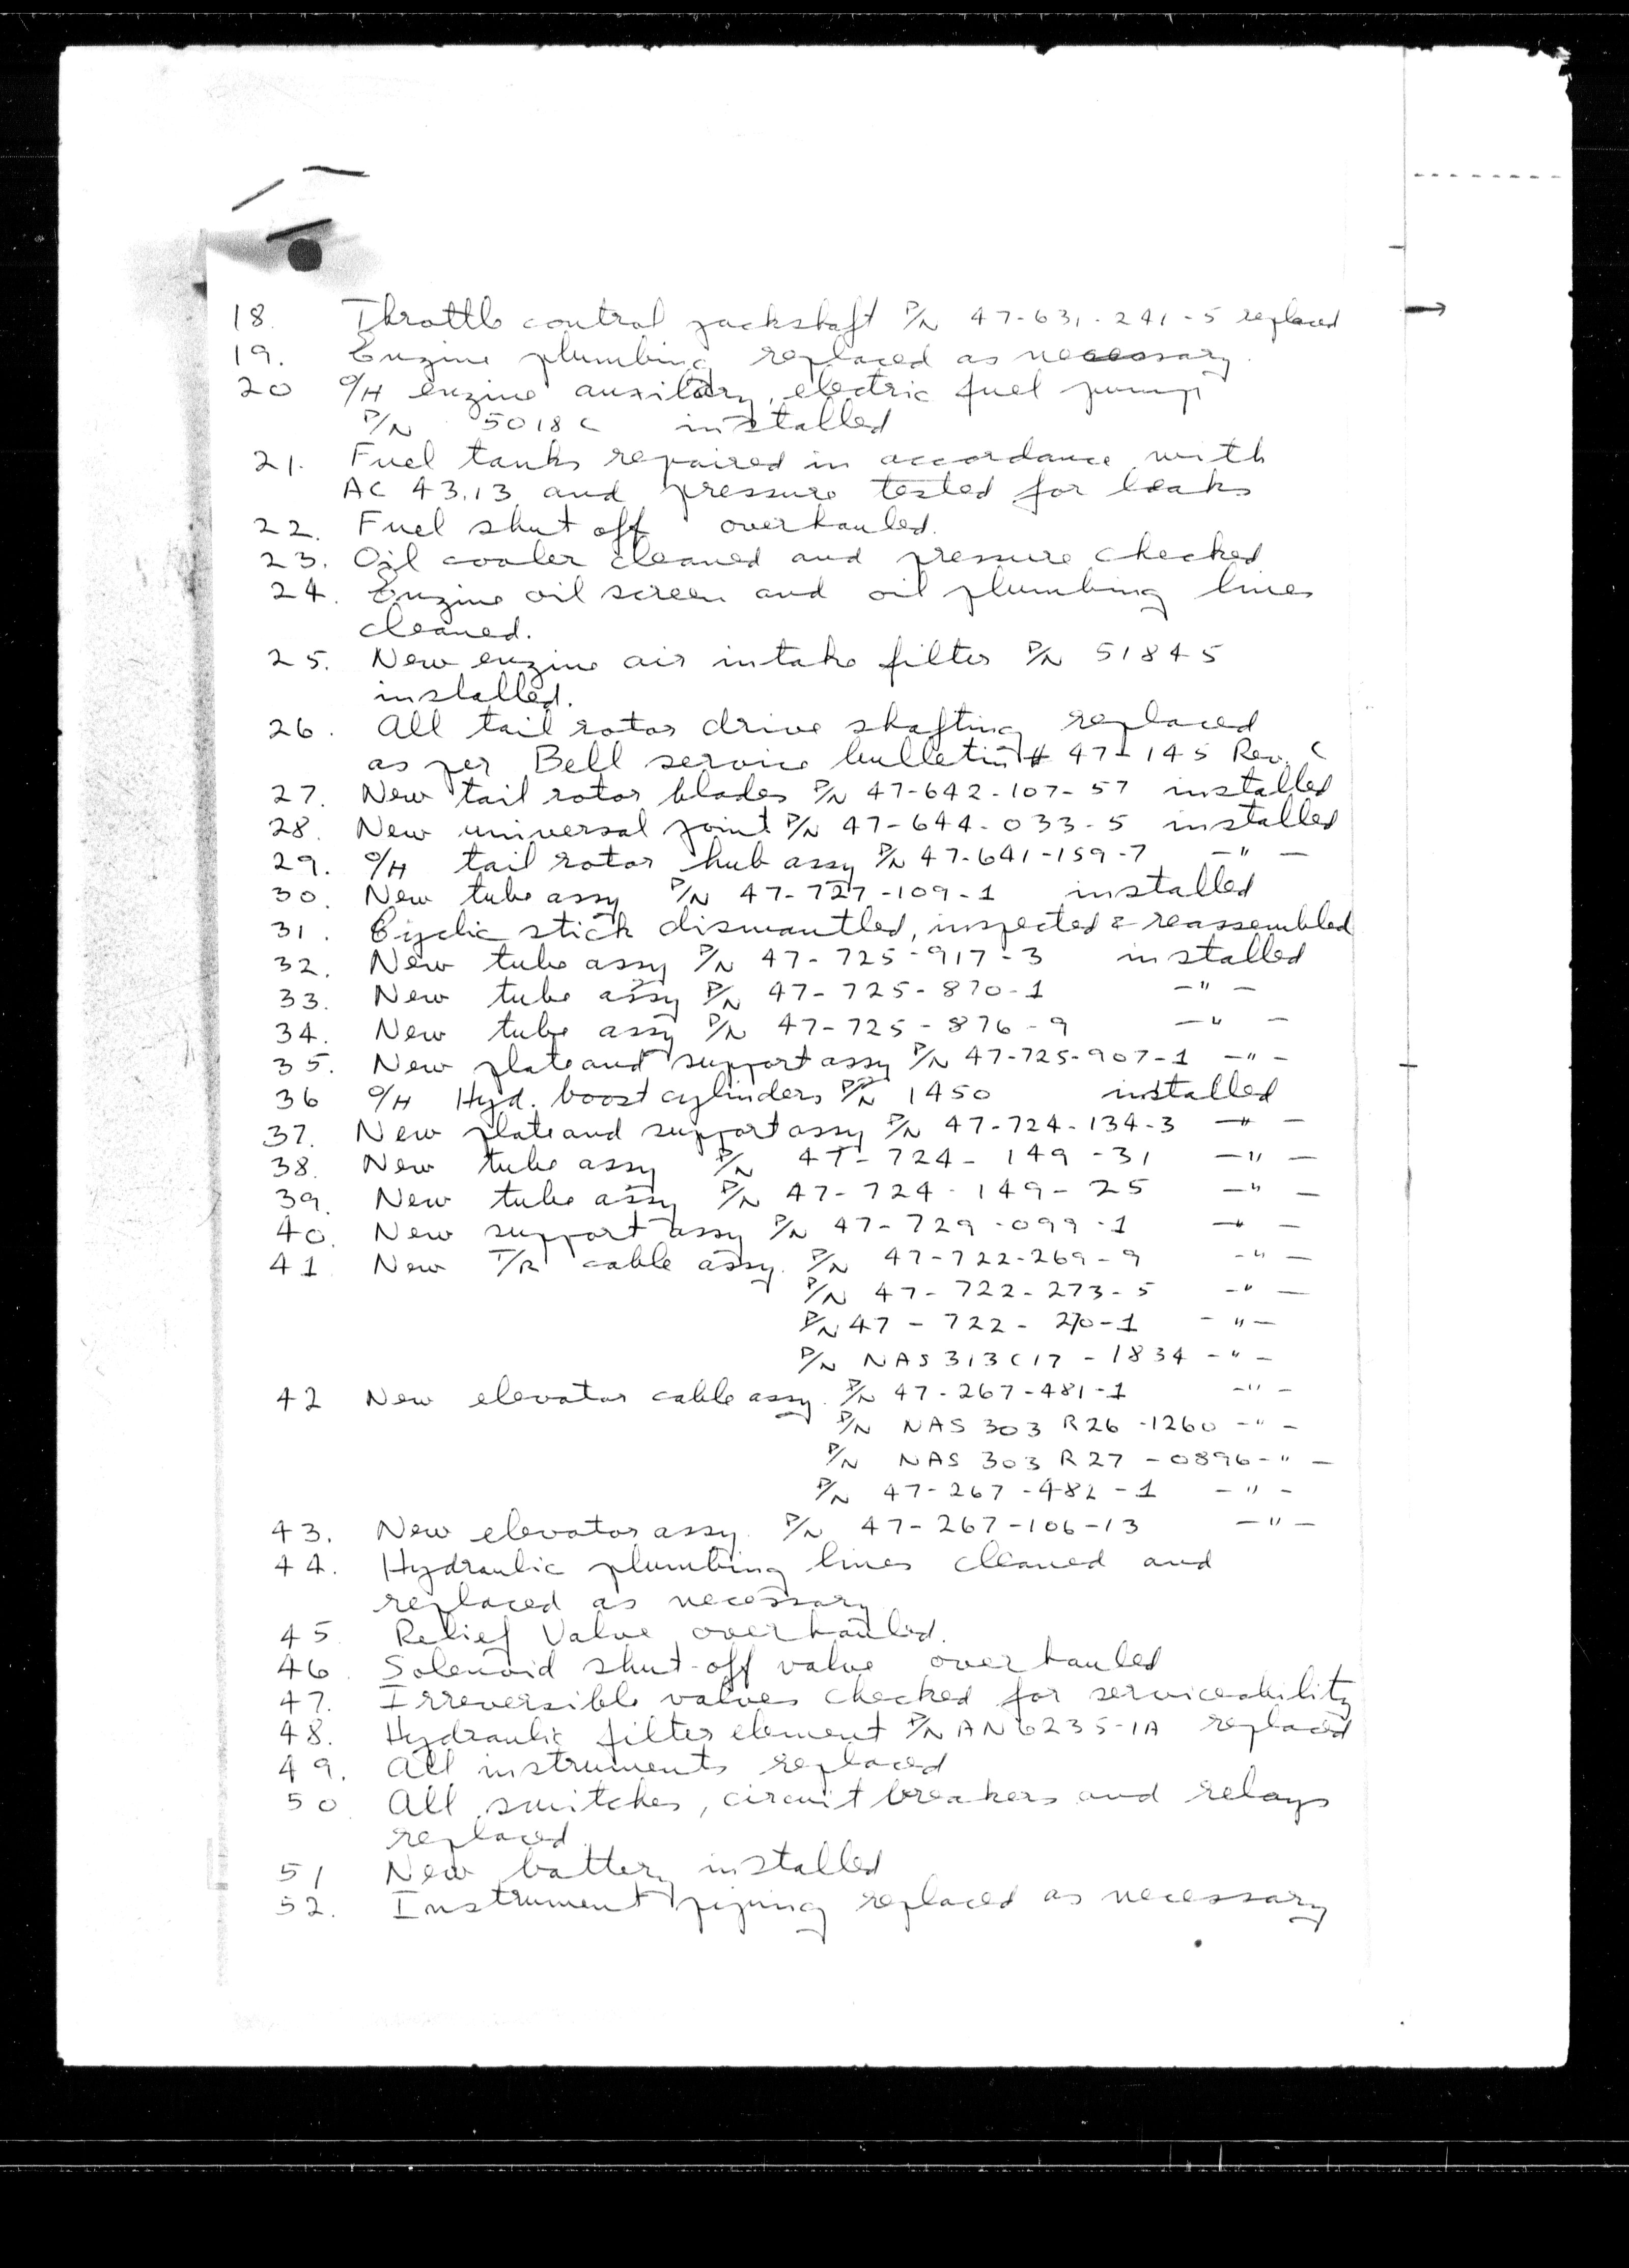 18. Throttle control jackshaft P/N 47-631-241-5 replaced
19. Engine plumbing replaced as necessary.
20 O/H engine auxilary, electric fuel pump
P/N 5018C installed
21. Fuel tanks repaired in accordance with
AC 43.13 and pressure tested for leaks
22. Fuel shut off overhauled.
23. Oil cooler cleaned and pressure checked
24. Engine oil screen and oil plumbing lines
cleaned.
25. New engine air intake filter P/N 51845
installed.
26. All tail rotor drive shafting replaced
as per Bell service bulletin # 47-145 Rev. C
27. New tail rotor blades P/N 47-642-107-57 installed
28. New universal joint P/N 47-644-033-5 installed
29. O/H tail rotor hub assy P/N 47-641-159-7 -"-
30. New tube assy P/N 47-727-109-1 installed
31. Cyclic stick dismantled, inspected & reassembled
32. New tube assy P/N 47-725-917-3 installed
33. New tube assy P/N 47-725-870-1 -"-
34. New tube assy P/N 47-725-876-9 -"-
35. New plate and support assy P/N 47-725-907-1 -"-
36 O/H Hyd. boost cylinders P/N 1450 installed
37. New plate and support assy P/N 47-724-134-3 -"-
38. New tube assy P/N 47-724-149-31 -"-
39. New tube assy P/N 47-724-149-25 -"-
40. New support assy P/N 47-729-099-1 -"-
41 New T/R cable assy. P/N 47-722-269-9 -"-
P/N 47-722-273-5 -"-
P/N 47-722-270-1 -"-
P/N NAS 313C17-1834 -"-
42 New elevator cable assy. P/N 47-267-481-1 -"-
P/N NAS 303 R26-1260 -"-
P/N NAS 303 R27-0896 -"-
P/N 47-267-482-1 -"-
43. New elevator assy. P/N 47-267-106-13 -"-
44. Hydraulic plumbing lines cleaned and
replaced as necessary
45 Relief Valve overhauled.
46. Solenoid shut-off valve overhauled
47. Irreversible valves checked for serviceability
48. Hydraulic filter element P/N AN6235-1A replaced
49. All instruments replaced
50 All switches, circuit breakers and relays
replaced.
51 New battery installed
52. Instrument piping replaced as necessary